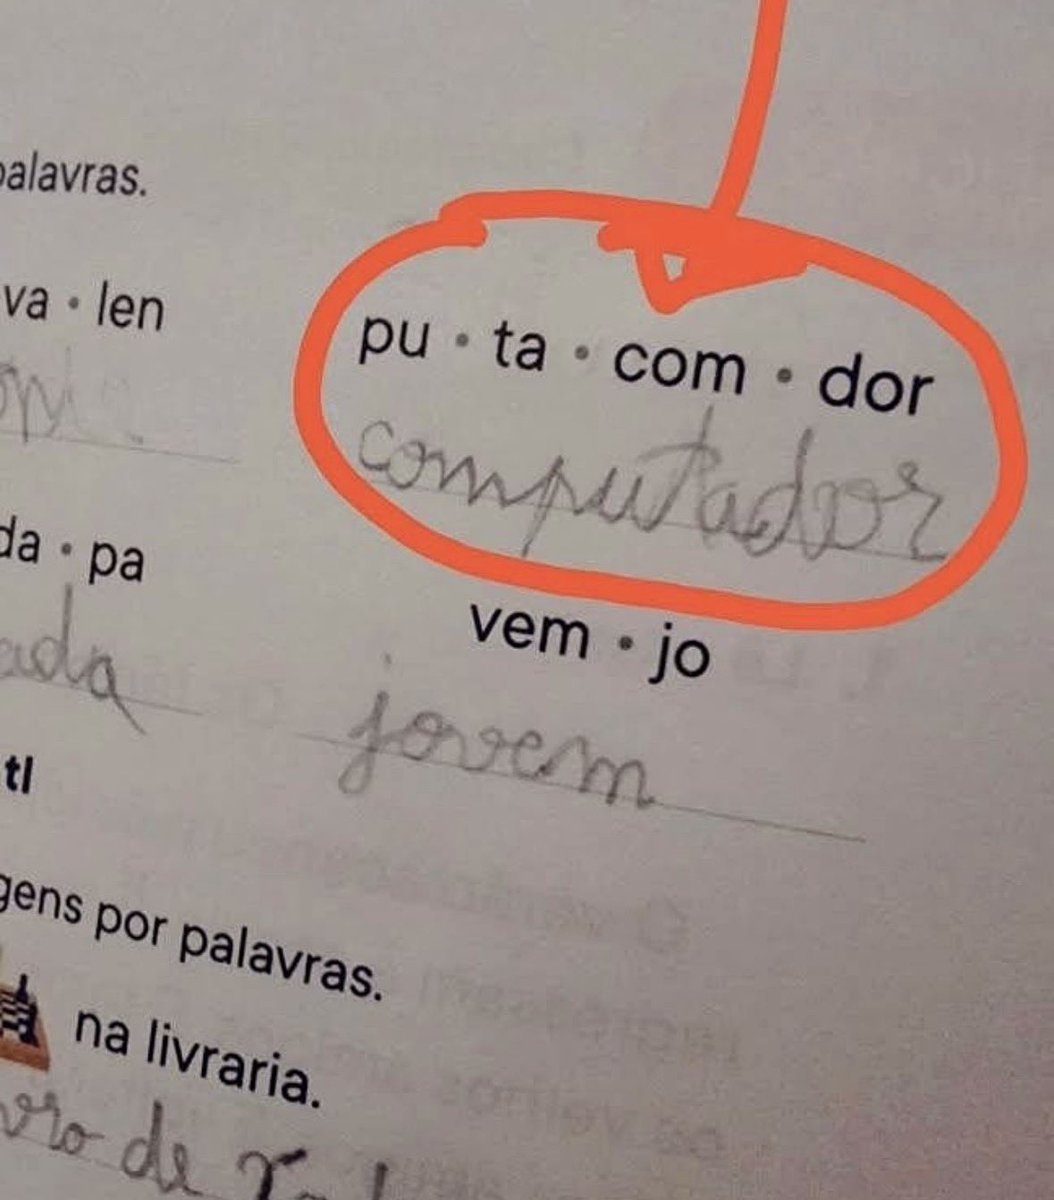 palavras.
va · len
pu · ta · com · dor
computador
da · pa
ada
vem · jo
jovem
tl
gens por palavras.
na livraria.
vro de